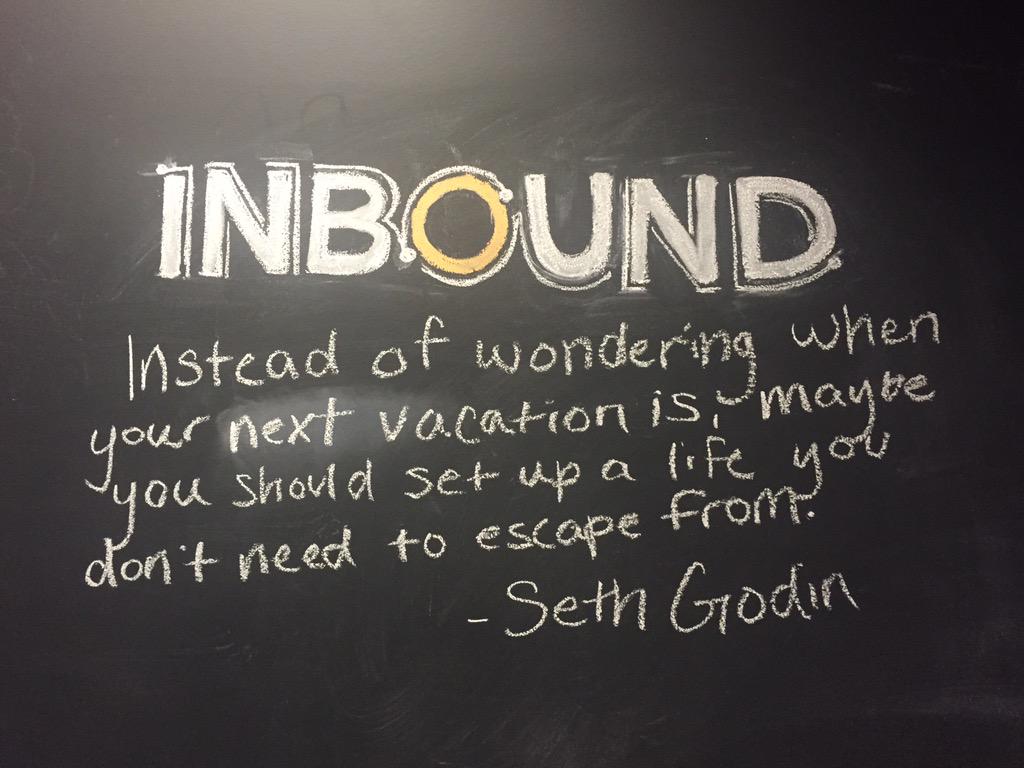 INBOUND
Instead of wondering when
your next vacation is, maybe
you should set up a life you
don't need to escape from.
- Seth Godin